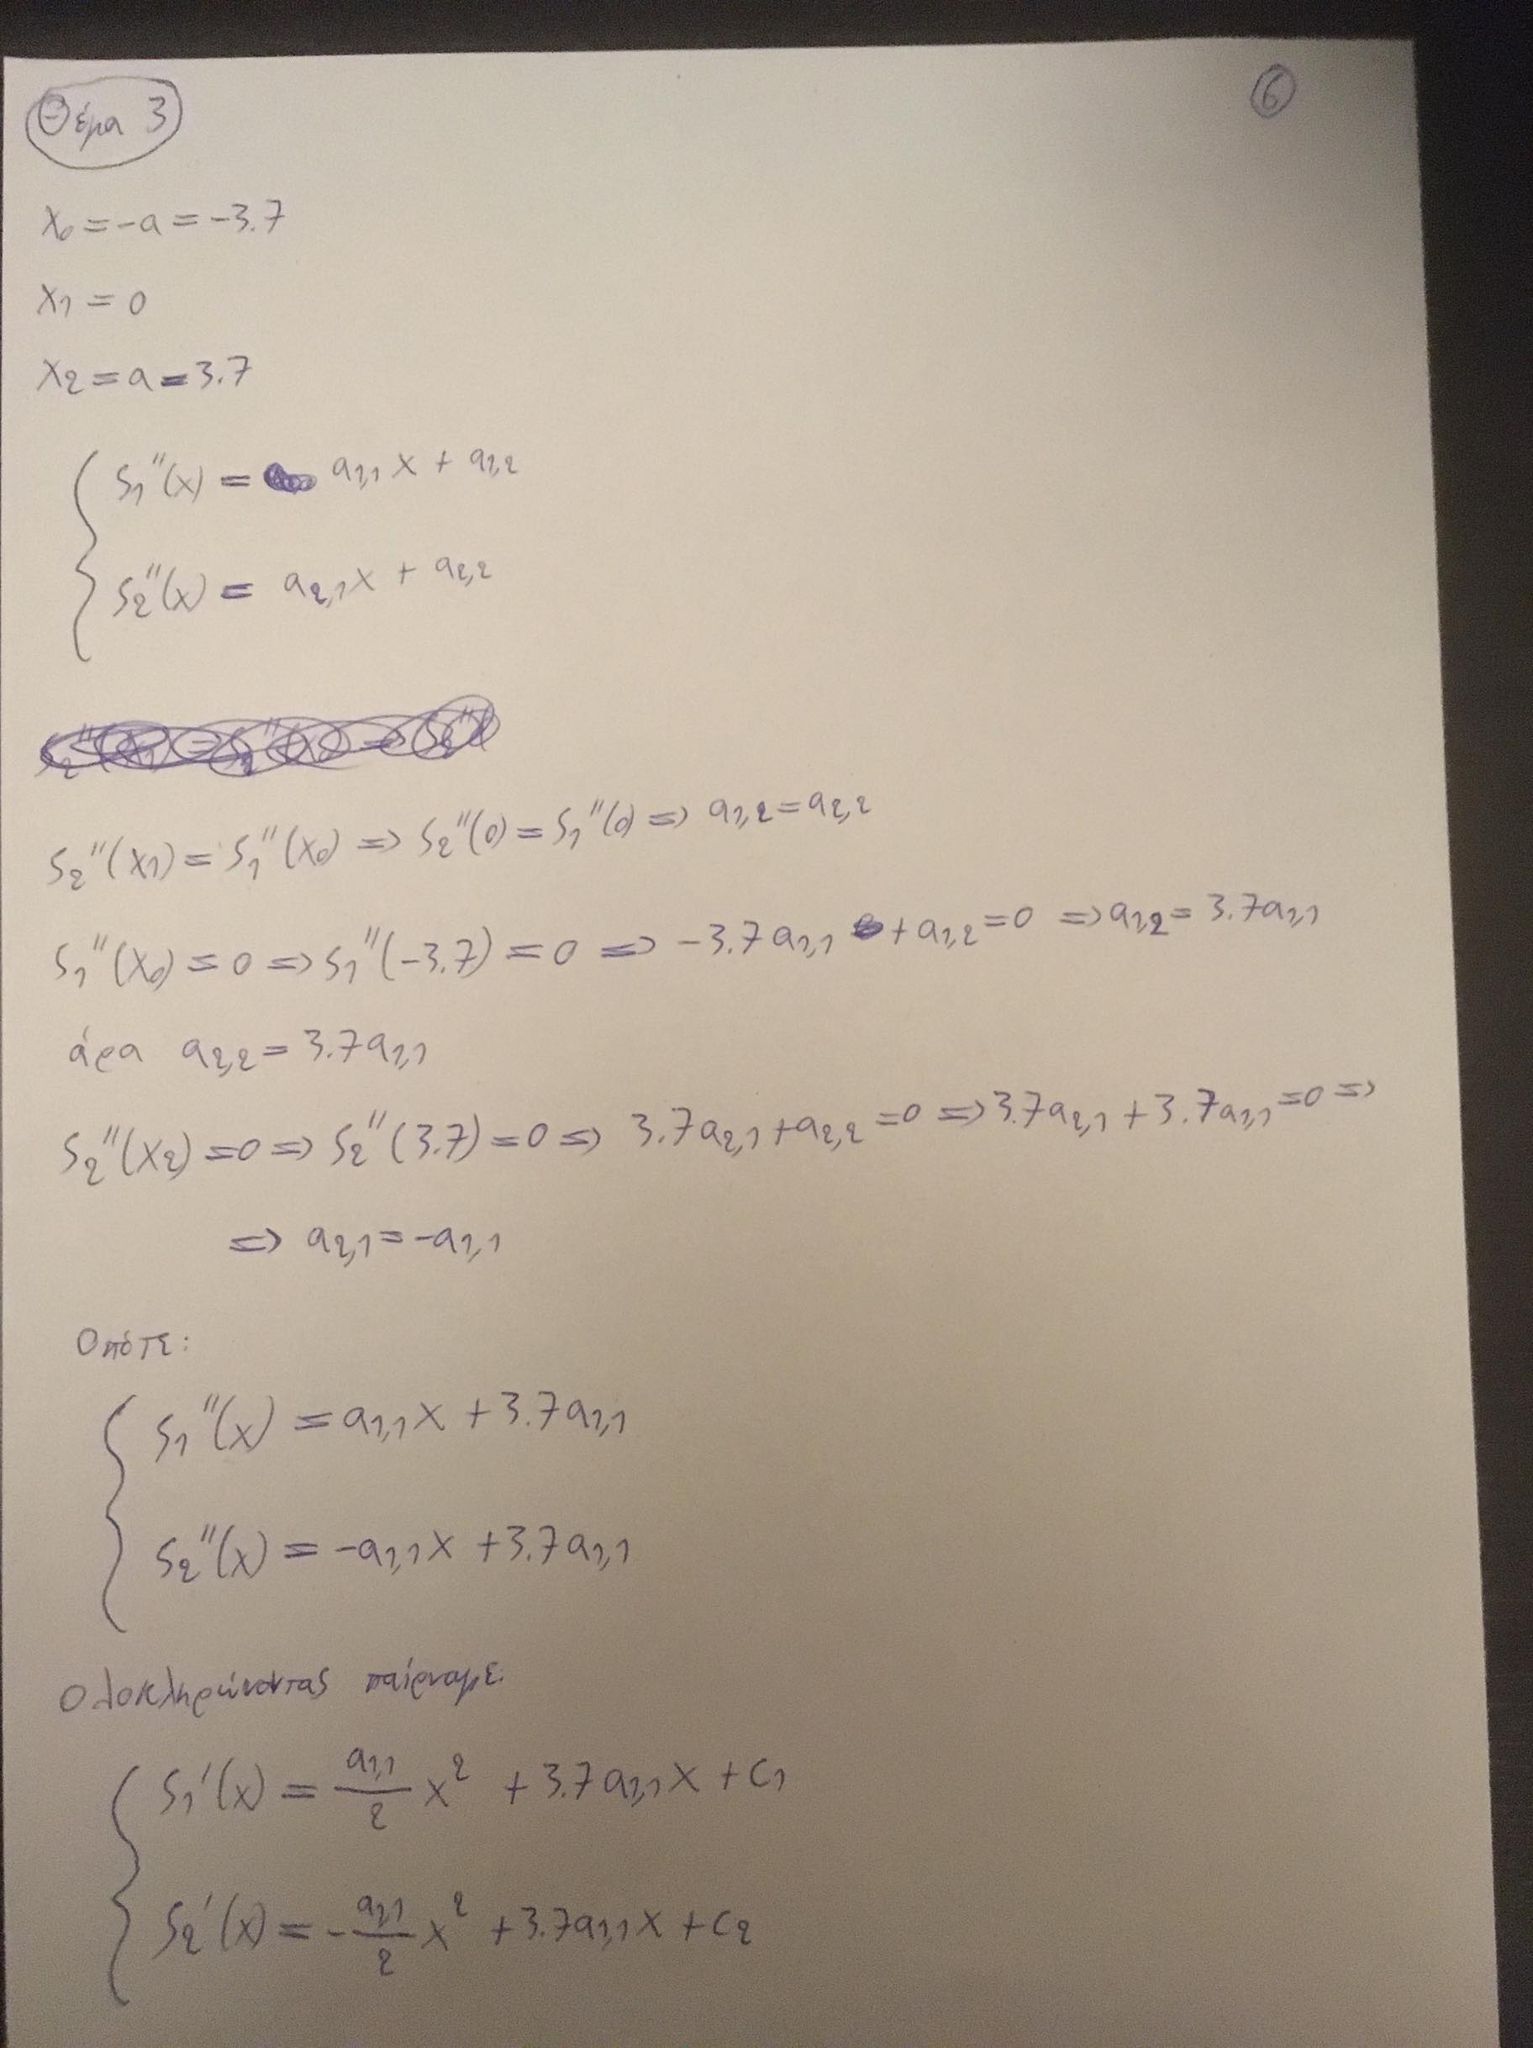 Θέμα 3
6
x₀ = -a = -3.7
x₁ = 0
x₂ = a = 3.7
S₁''(x) = a₁,₁x + a₁,₂
S₂''(x) = a₂,₁x + a₂,₂
S₂''(x₁) = S₁''(x₀) => S₂''(0) = S₁''(0) => a₁,₂ = a₂,₂
S₁''(x₀) = 0 => S₁''(-3.7) = 0 => -3.7a₁,₁ + a₁,₂ = 0 => a₁,₂ = 3.7a₁,₁
άρα a₂,₂ = 3.7a₁,₁
S₂''(x₂) = 0 => S₂''(3.7) = 0 => 3.7a₂,₁ + a₂,₂ = 0 => 3.7a₂,₁ + 3.7a₁,₁ = 0 =>
=> a₂,₁ = -a₁,₁
Οπότε:
S₁''(x) = a₁,₁x + 3.7a₁,₁
S₂''(x) = -a₁,₁x + 3.7a₁,₁
Ολοκληρώνοντας παίρνουμε:
S₁'(x) = a₁,₁/2 x² + 3.7a₁,₁x + c₁
S₂'(x) = -a₁,₁/2 x² + 3.7a₁,₁x + c₂